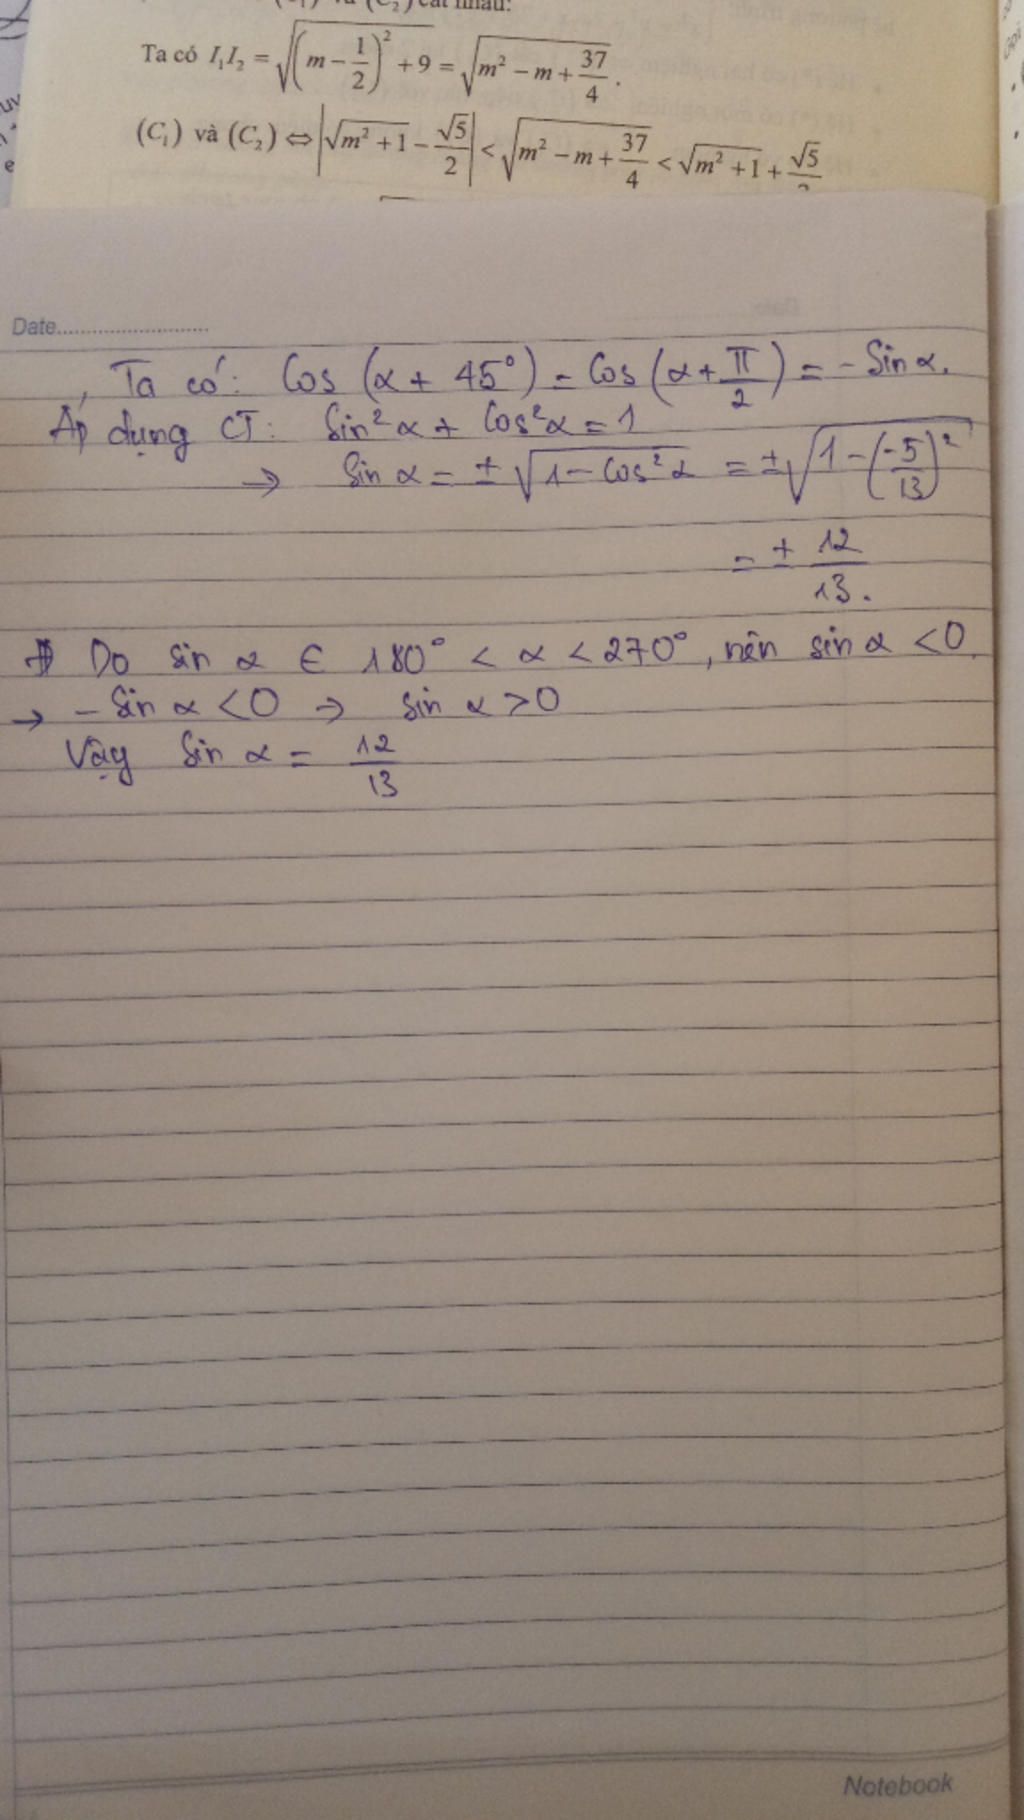 (C₂) cắt nhau:
Ta có I₁I₂ = √((m − 1/2)² + 9) = √(m² − m + 37/4).
(C₁) và (C₂) ⇔ |√(m² + 1) − √5/2| < √(m² − m + 37/4) < √(m² + 1) + √5
Date
Ta có: Cos (α + 45°) = Cos (α + π/2) = − Sin α.
Áp dụng CT: Sin²α + Cos²α = 1
→ Sin α = ± √(1 − Cos²α) = ± √(1 − (−5/13)²)
= ± 12/13.
Do sin α ∈ 180° < α < 270°, nên sin α < 0.
→ − Sin α < 0 → Sin α > 0
Vậy Sin α = 12/13
Notebook